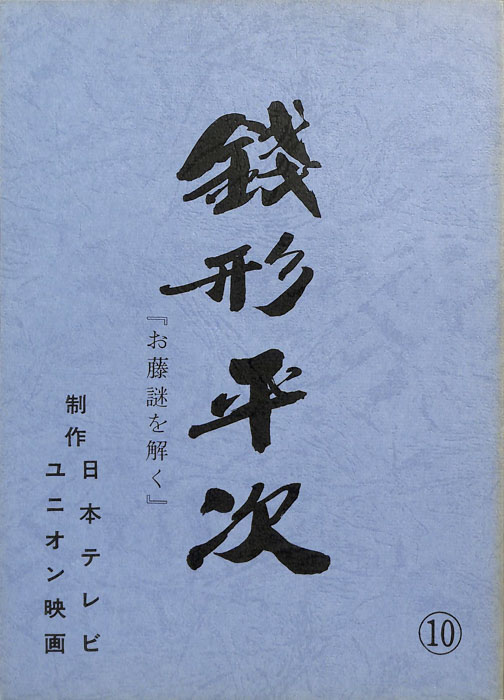 銭形平次
『お藤謎を解く』
制作
日本テレビ
ユニオン映画
⑩